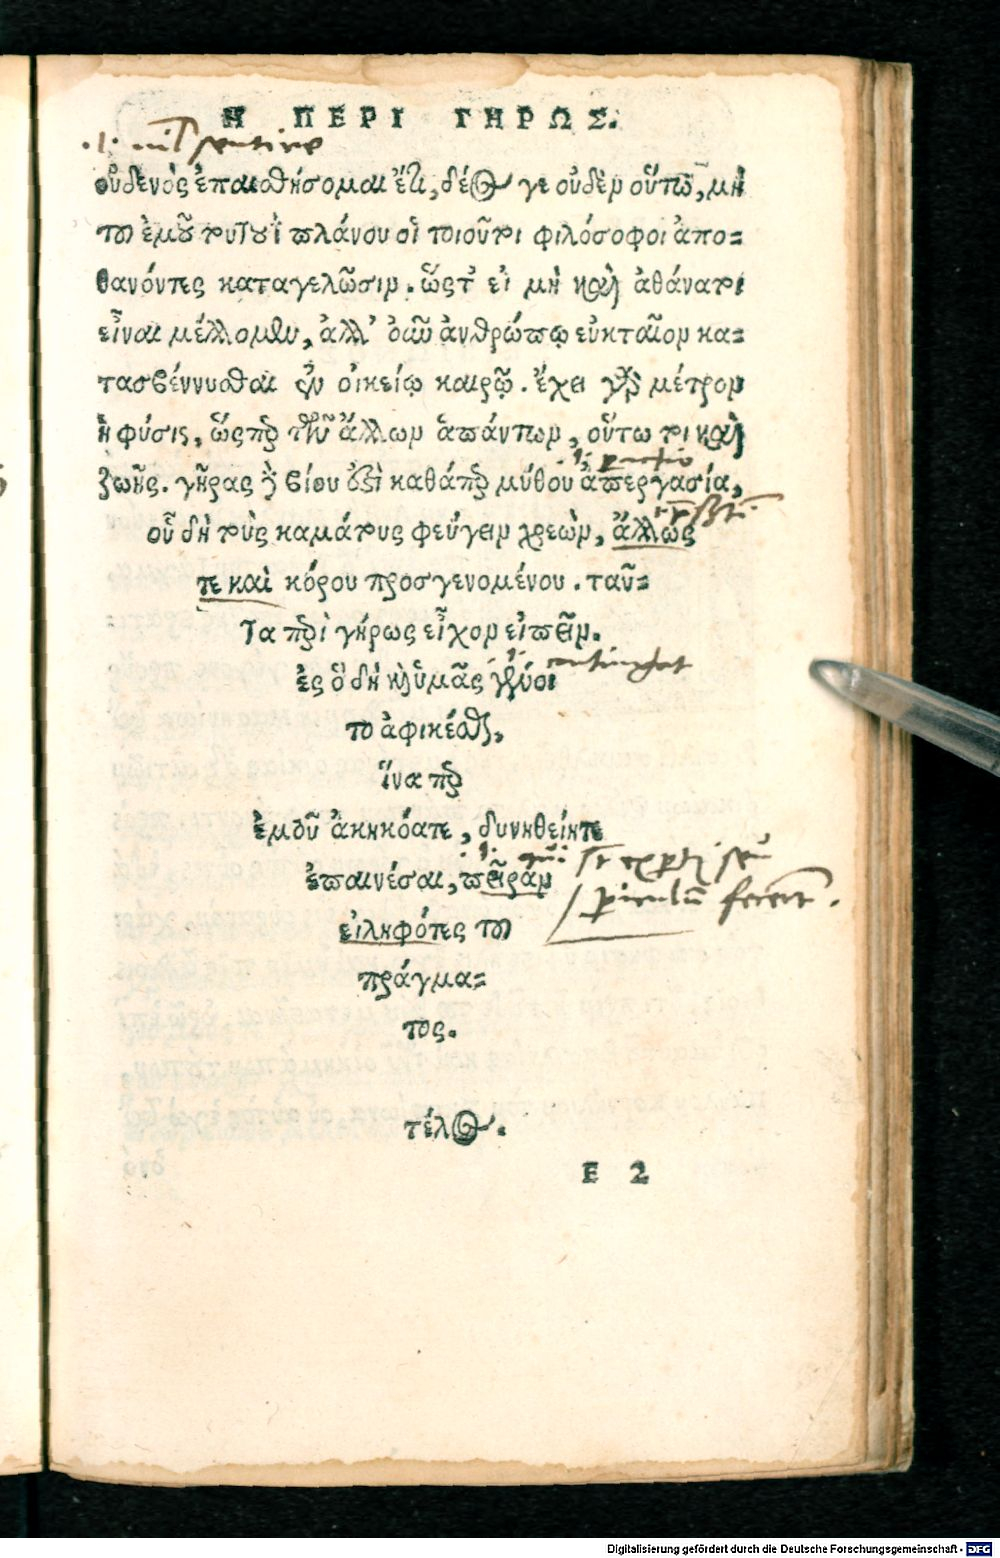 Η ΠΕΡΙ ΓΗΡΩΣ.
.i. nil sentire
οὐδενὸς ἐπαισθήσομαι ἔτι, δέος γε οὐδὲν οὕτω, μὴ
τοῦ ἐμοῦ τουτουὶ πλάνου οἱ τοιοῦτοι φιλόσοφοι ἀπο=
θανόντες καταγελῶσιν. ὥστ' εἰ μὴ καὶ ἀθάνατοι
εἶναι μέλλομεν, ἀλλ' ὅμως ἀνθρώπῳ εὐκταῖον κα=
τασβέννυσθαι ἐν οἰκείῳ καιρῷ. ἔχει γὰρ μέτρον
ἡ φύσις, ὥσπερ τῶν ἄλλων ἁπάντων, οὕτω τοι καὶ
ζωῆς. γῆρας δὲ βίου ἐστὶ καθάπερ μύθου ἀπεργασία,
οὗ δὴ τοὺς καμάτους φεύγειν χρεὼν, ἄλλως
τε καὶ κόρου προσγενομένου. ταῦ=
τα περὶ γήρως εἶχον εἰπεῖν.
.i. contingat
ἐς ὃ δὴ καὶ ὑμᾶς γένοι
το ἀφικέσθαι,
ἵνα περ
ἐμοῦ ἀκηκόατε, δυνηθείητε
ἐπαινέσαι, πεῖραν
εἰληφότες τοῦ
πράγμα=
τος.
τέλος.
E 2
Digitalisierung gefördert durch die Deutsche Forschungsgemeinschaft - DFG